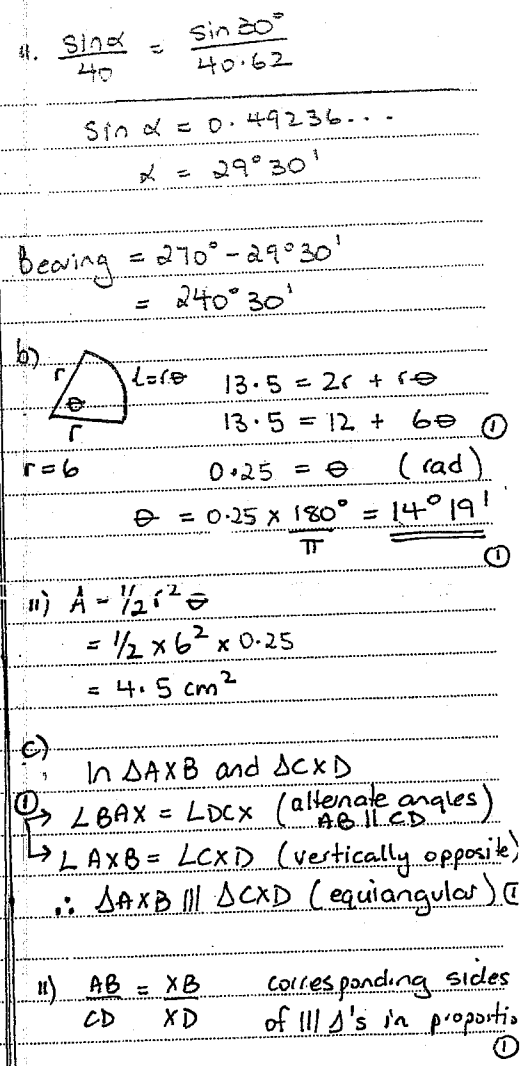 ii. sinα/40 = sin 30°/40.62
Sin α = 0.49236...
α = 29°30'
Bearing = 270° - 29°30'
= 240°30'
b) r θ r L=rθ 13.5 = 2r + rθ
13.5 = 12 + 6θ ①
r = 6 0.25 = θ (rad)
θ = 0.25 × 180°/π = 14°19'
①
ii) A = 1/2 r² θ
= 1/2 × 6² × 0.25
= 4.5 cm²
c)
In ΔAXB and ΔCXD
① → ∠BAX = ∠DCX (alternate angles) AB || CD
→ ∠AXB = ∠CXD (vertically opposite)
∴ ΔAXB ||| ΔCXD (equiangular) ①
ii) AB/CD = XB/XD corresponding sides
of ||| Δ's in proportio
①